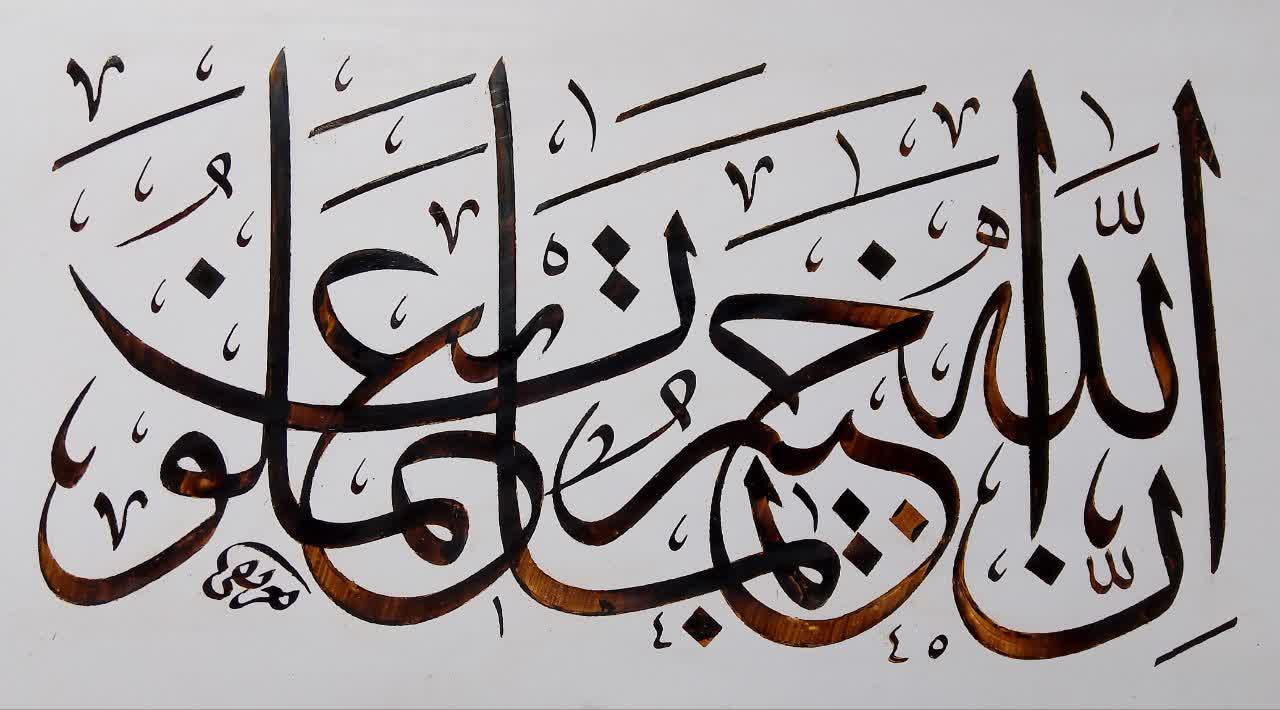 اِنَّ اللّٰهَ خَبِيرٌ بِمَا تَعْمَلُونَ